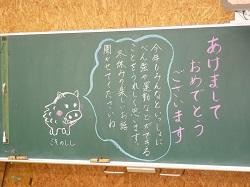 あけまして
おめでとう
ございます
今年もみんなといっしょに
べん強や運動などができる
ことをうれしく思います。
冬休みの楽しいお話
聞かせてくださいね
いのしし